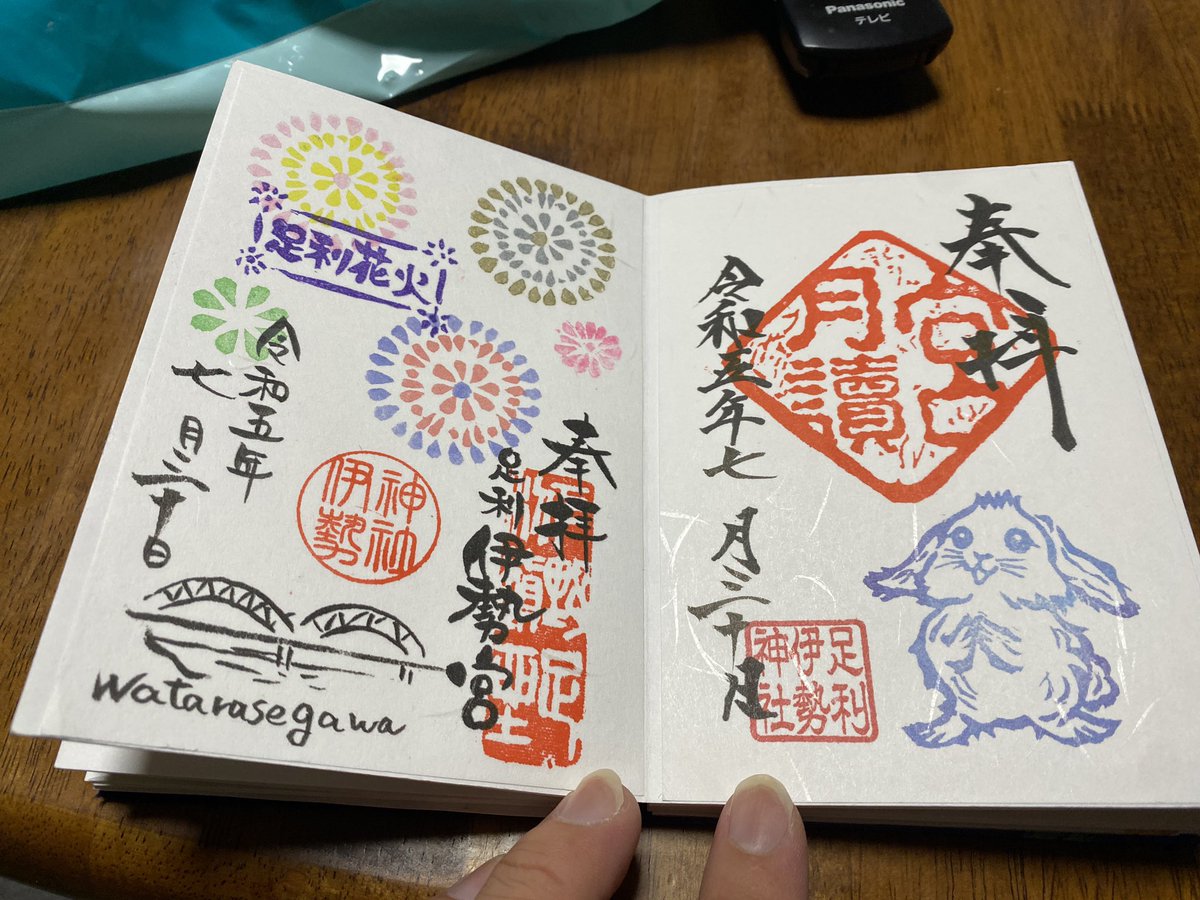 Panasonic
テレビ
奉拝
月讀
宮
令和五年七月三十日
足利
伊勢
神社
足利花火
奉拝
足利伊勢宮
伊勢
神社
令和五年
七月三十日
Watarasegawa